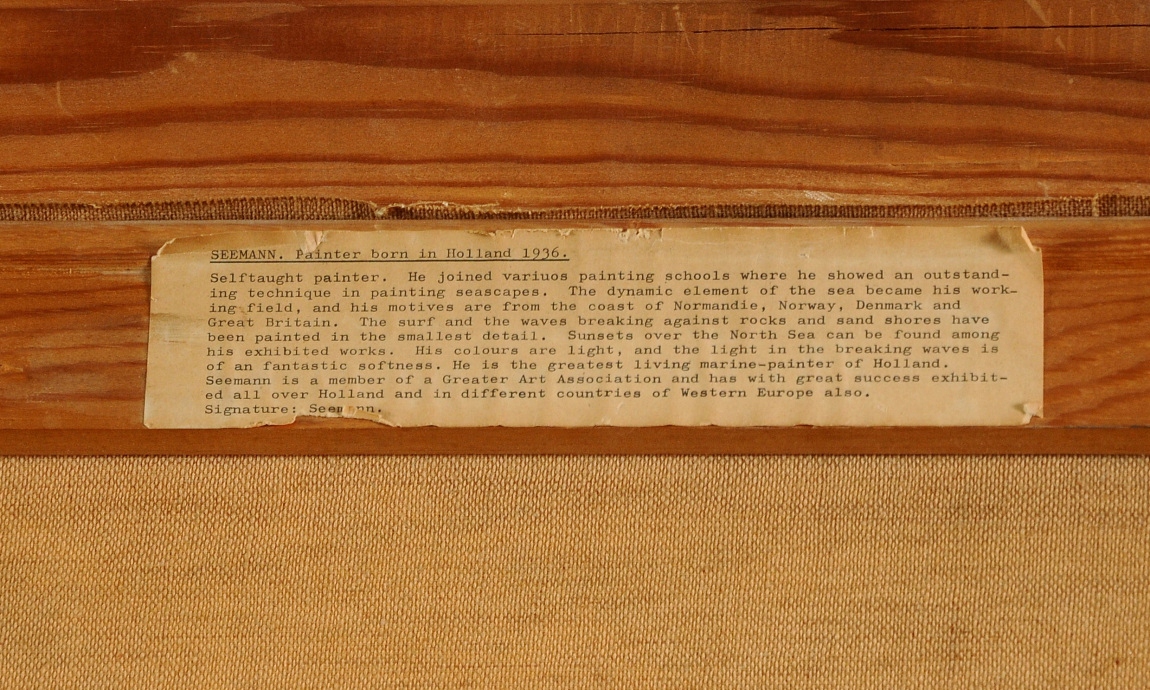 SEEMANN. Painter born in Holland 1936.
Selftaught painter. He joined variuos painting schools where he showed an outstand-
ing technique in painting seascapes. The dynamic element of the sea became his work-
ing field, and his motives are from the coast of Normandie, Norway, Denmark and
Great Britain. The surf and the waves breaking against rocks and sand shores have
been painted in the smallest detail. Sunsets over the North Sea can be found among
his exhibited works. His colours are light, and the light in the breaking waves is
of an fantastic softness. He is the greatest living marine-painter of Holland.
Seemann is a member of a Greater Art Association and has with great success exhibit-
ed all over Holland and in different countries of Western Europe also.
Signature: Seemann.